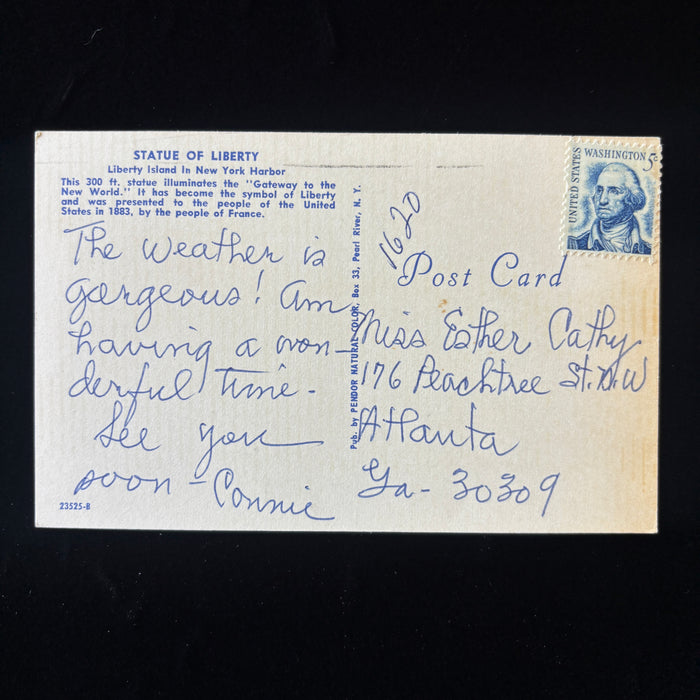 STATUE OF LIBERTY
Liberty Island In New York Harbor
This 300 ft. statue illuminates the "Gateway to the
New World." It has become the symbol of Liberty
and was presented to the people of the United
States in 1883, by the people of France.
The weather is
gorgeous! Am
having a won-
derful time.
See you
soon - Connie
23525-B
Pub. by PENDOR NATURAL COLOR, Box 33, Pearl River, N. Y.
1620
Post Card
UNITED STATES
WASHINGTON 5c
Miss Esther Cathy
176 Peachtree St. N.W
Atlanta
Ga - 30309